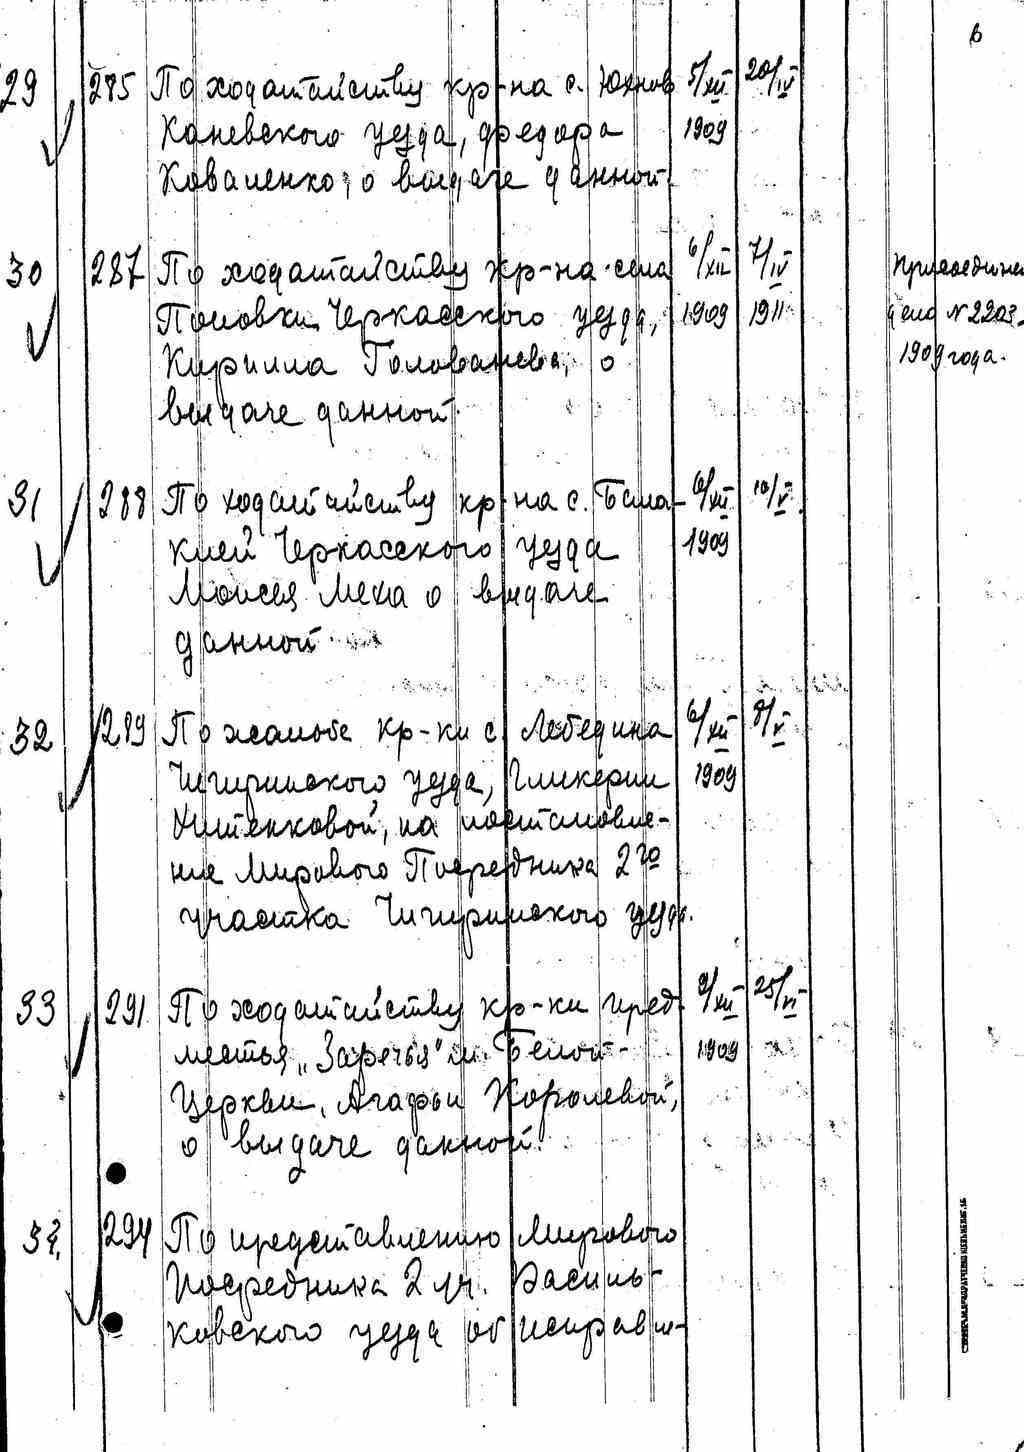 6
29 285 По ходатайству кр-на с. Юхнов 5/XII 20/IV
Каневского уезда, Федора 1909
Коваленко, о выдаче данной.
30 287 По ходатайству кр-на села 6/XII 7/IV Присоединен
Поповки Черкасского уезда, 1909 1911 дело № 2203
Кирилла Голованева, о 1909 года.
выдаче данной.
31 288 По ходатайству кр-на с. Бала- 6/XII 10/V.
клей Черкасского уезда 1909
Моисея Меха о выдаче
данной
32 289 По жалобе кр-ки с. Лебедина 6/XII 8/V
Чигиринского уезда, Гликерии 1909
Хитенковой, на постановле-
ние Мирового Посредника 2го
участка Чигиринского уезда.
33 291 По ходатайству кр-ки пред- 9/XII 25/VI
местья „Заречья" м. Белой- 1909
Церкви, Агафьи Королевой,
о выдаче данной.
34. 294 По представлению Мирового
Посредника 2 уч. Василь-
ковского уезда об исправле-